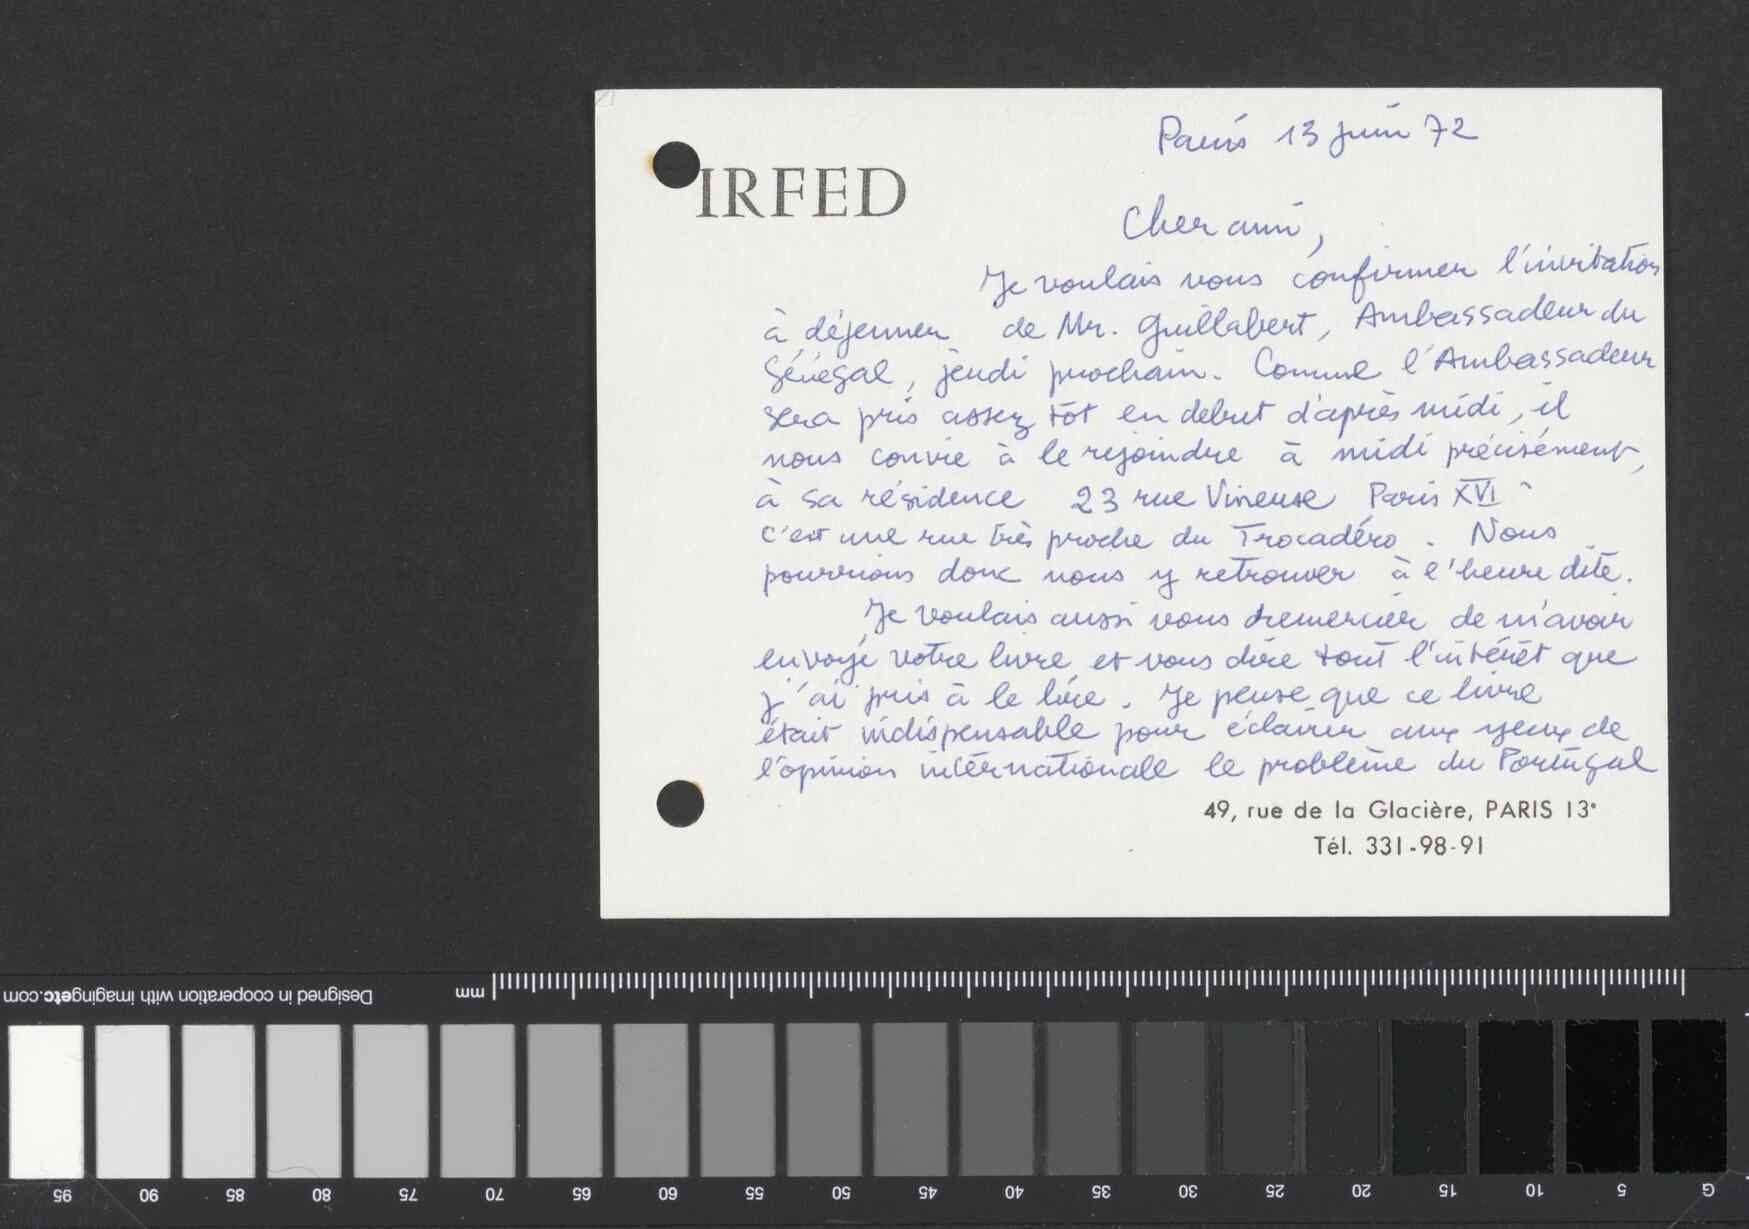 Paris 13 juin 72
IRFED
Cher ami,
Je voulais vous confirmer l'invitation
à déjeuner de Mr. Guillabert, Ambassadeur du
Sénégal, jeudi prochain. Comme l'Ambassadeur
sera pris assez tôt en debut d'après midi, il
nous convie à le rejoindre à midi précisément,
à sa résidence 23 rue Vineuse Paris XVI
c'est une rue très proche du Trocadéro. Nous
pourrions donc nous y retrouver à l'heure dite.
Je voulais aussi vous remercier de m'avoir
envoyé votre livre et vous dire tout l'intérêt que
j'ai pris à le lire. Je pense que ce livre
était indispensable pour éclairer aux yeux de
l'opinion internationale le problème du Portugal
49, rue de la Glacière, PARIS 13e
Tél. 331-98-91
Designed in cooperation with imagingetc.com
mm
95 90 85 80 75 70 65 60 55 50 45 40 35 30 25 20 15 10 5 G